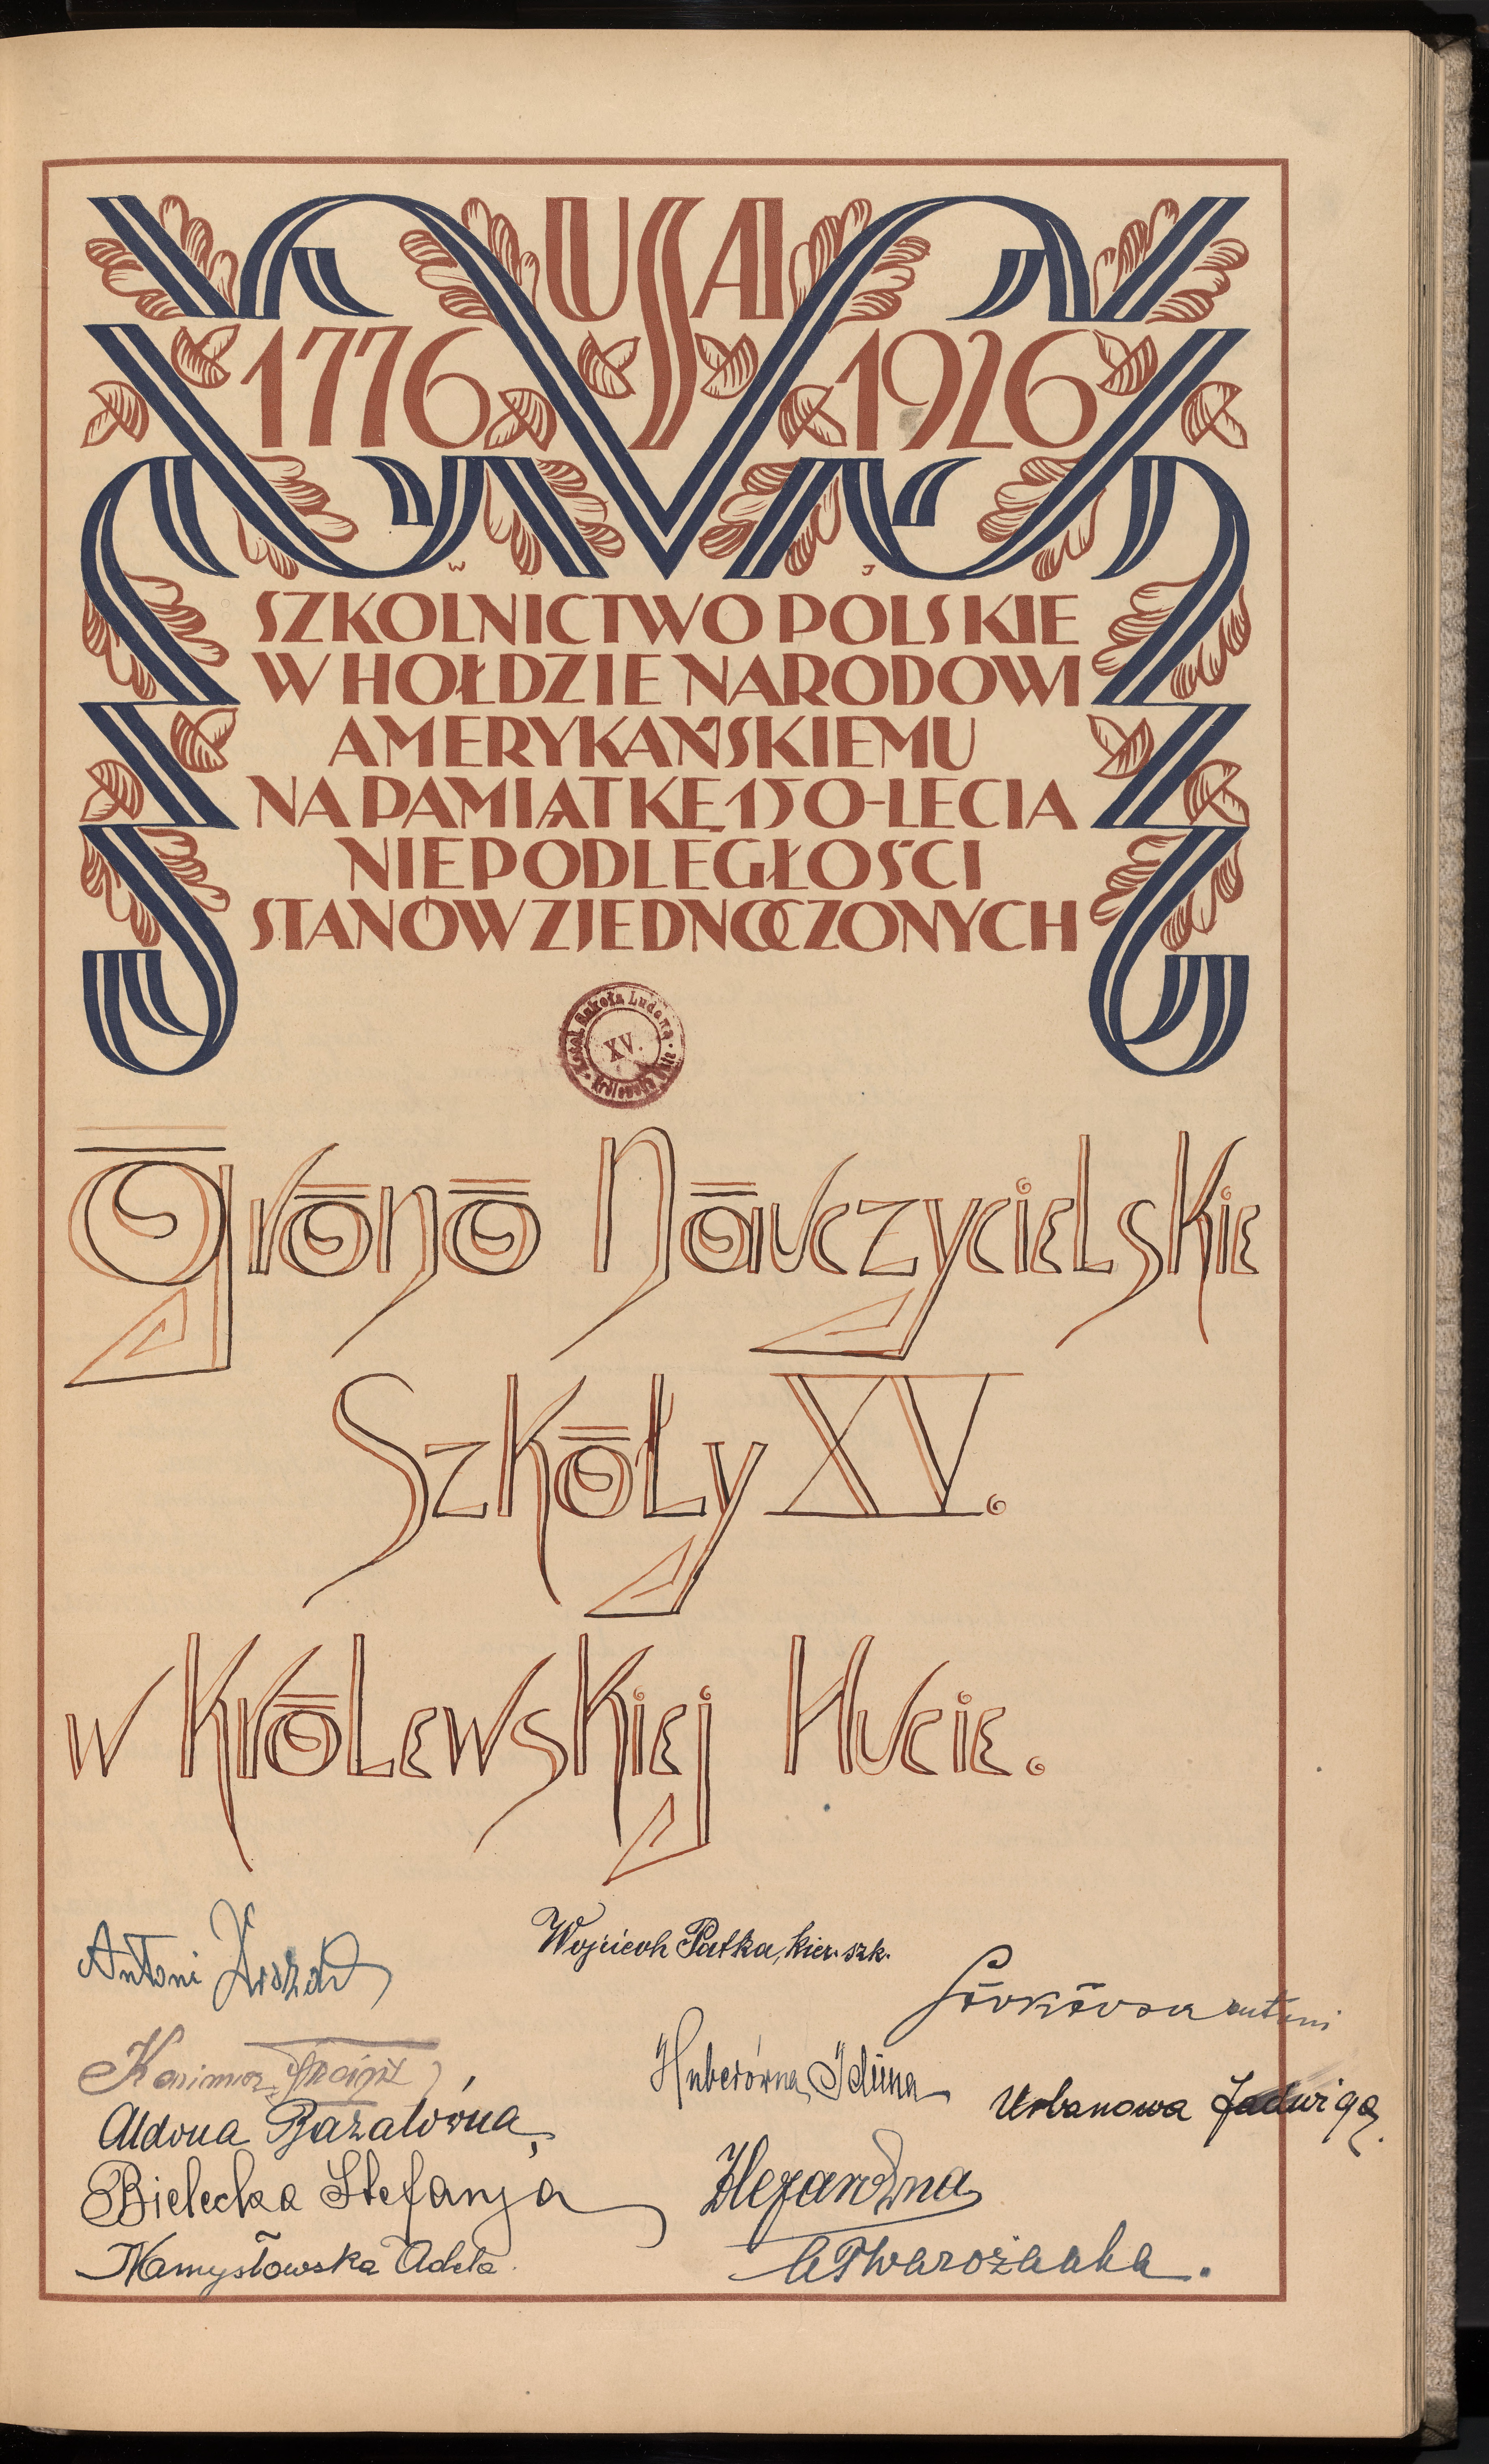 USA
1776 1926
W J
SZKOLNICTWO POLSKIE
W HOŁDZIE NARODOWI
AMERYKAŃSKIEMU
NA PAMIĄTKĘ 150-LECIA
NIEPODLEGŁOŚCI
STANÓW ZJEDNOCZONYCH
Katol. Szkoła Ludowa
XV.
Królewska Huta
Grono Nauczycielskie
Szkoły XV.
w Królewskiej Hucie.
Antoni
Wojciech Patka, kier. szk.
antoni
Kazimierz
Huberówna Iduna
Urbanowa Jadwiga.
Aldona Bazalówna
Bielecka Stefanja
Namysłowska Adela.
ATwarożanka.